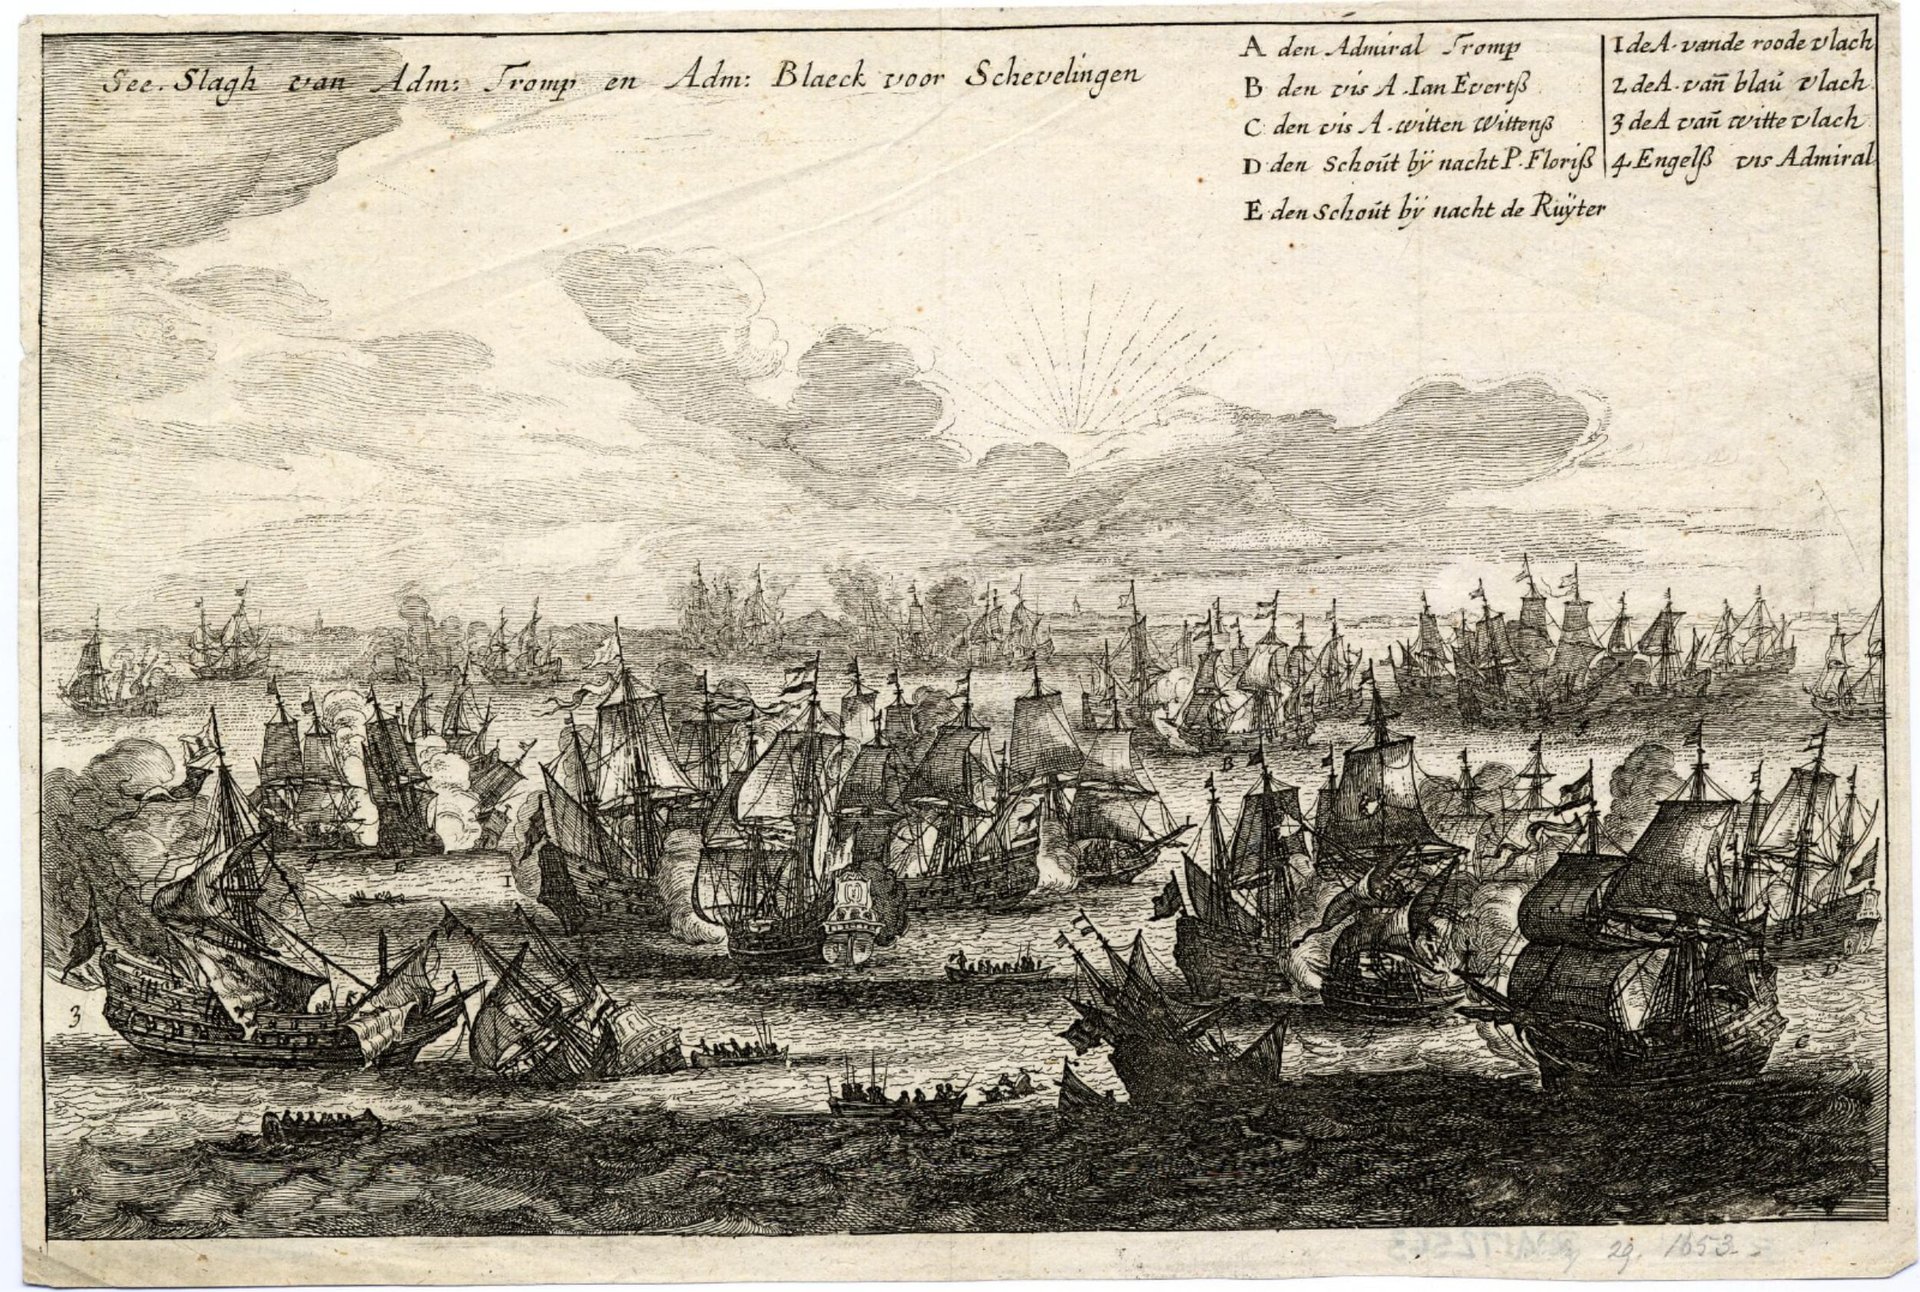 See. Slagh van Adm: Tromp en Adm: Blaeck voor Schevelingen
A den Admiral Tromp
B den vis A. Ian Evertß
C den vis A. witten Wittenß
D den Schoút bÿ nacht P. Floriß
E den Schoút bÿ nacht de Ruÿter
1 de A. vande roode vlach
2 de A. vañ blaú vlach
3 de A vañ witte vlach
4 Engelß vis Admiral
B
4
E
1
3
D
C
29. 1653.